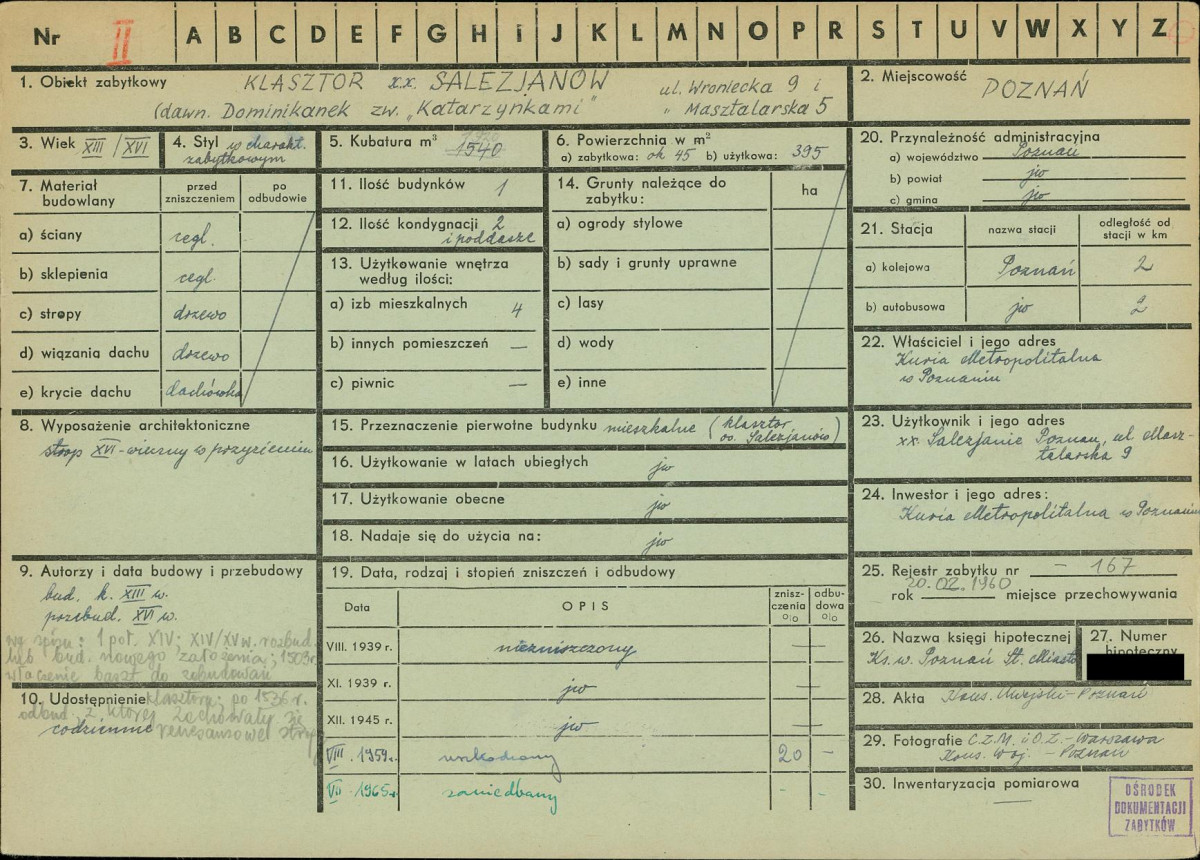 Nr II A B C D E F G H I J K L M N O P R S T U V W X Y Z
1. Obiekt zabytkowy KLASZTOR xx. SALEZJANÓW ul. Wroniecka 9 i
(dawn. Dominikanek zw. „Katarzynkami" " Masztalarska 5
2. Miejscowość POZNAŃ
3. Wiek XIII / XVI
4. Styl w charakt.
zabytkowym
5. Kubatura m³ 1540
6. Powierzchnia w m²
a) zabytkowa: ok 45 b) użytkowa: 395
7. Materiał budowlany
przed zniszczeniem
po odbudowie
a) ściany cegl.
b) sklepienia cegl.
c) stropy drzewo
d) wiązania dachu drzewo
e) krycie dachu dachówka
8. Wyposażenie architektoniczne
strop XVI-wieczny w przyziemiu
9. Autorzy i data budowy i przebudowy
bud. k. XIII w.
przebud. XVI w.
wg spisu: 1 poł. XIV; XIV/XV w. rozbud.
lub bud. nowego założenia; 1503r
włączenie baszt do zabudowań
10. Udostępnienie klasztoru; po 1536 r.
odbud. z której zachowały się
codziennie renesansowe stropy
11. Ilość budynków 1
12. Ilość kondygnacji 2
i poddasze
13. Użytkowanie wnętrza
według ilości:
a) izb mieszkalnych 4
b) innych pomieszczeń —
c) piwnic —
14. Grunty należące do
zabytku:
ha
a) ogrody stylowe
b) sady i grunty uprawne
c) lasy
d) wody
e) inne
15. Przeznaczenie pierwotne budynku mieszkalne (klasztor
oo. Salezjanów)
16. Użytkowanie w latach ubiegłych jw
17. Użytkowanie obecne jw
18. Nadaje się do użycia na: jw
19. Data, rodzaj i stopień zniszczeń i odbudowy
Data OPIS znisz-czenia o|o odbu-dowa o|o
VIII. 1939 r. niezniszczony —
XI. 1939 r. jw —
XII. 1945 r. jw —
VIII. 1959 r. uszkodzony 20 -
VII - 1965 r. zaniedbany - -
20. Przynależność administracyjna
a) województwo Poznań
b) powiat jw
c) gmina jw
21. Stacja nazwa stacji odległość od stacji w km
a) kolejowa Poznań 2
b) autobusowa jw 2
22. Właściciel i jego adres
Kuria Metropolitalna
w Poznaniu
23. Użytkownik i jego adres
xx. Salezjanie Poznań, ul. Masz-
talarska 9
24. Inwestor i jego adres:
Kuria Metropolitalna w Poznaniu
25. Rejestr zabytku nr - 167
rok 20.02.1960 miejsce przechowywania
26. Nazwa księgi hipotecznej
Ks. w. Poznań St. Miasto
27. Numer
hipoteczny
28. Akta Kons. Miejski - Poznań
29. Fotografie C.Z.M. i O.Z. - Warszawa
Kons. Woj. - Poznań
30. Inwentaryzacja pomiarowa
—
OŚRODEK
DOKUMENTACJI
ZABYTKÓW